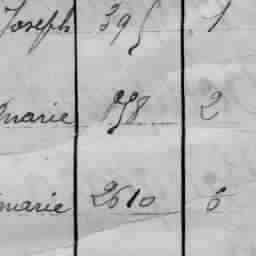 Joseph 395 1
marie 858 2
marie 2610 6